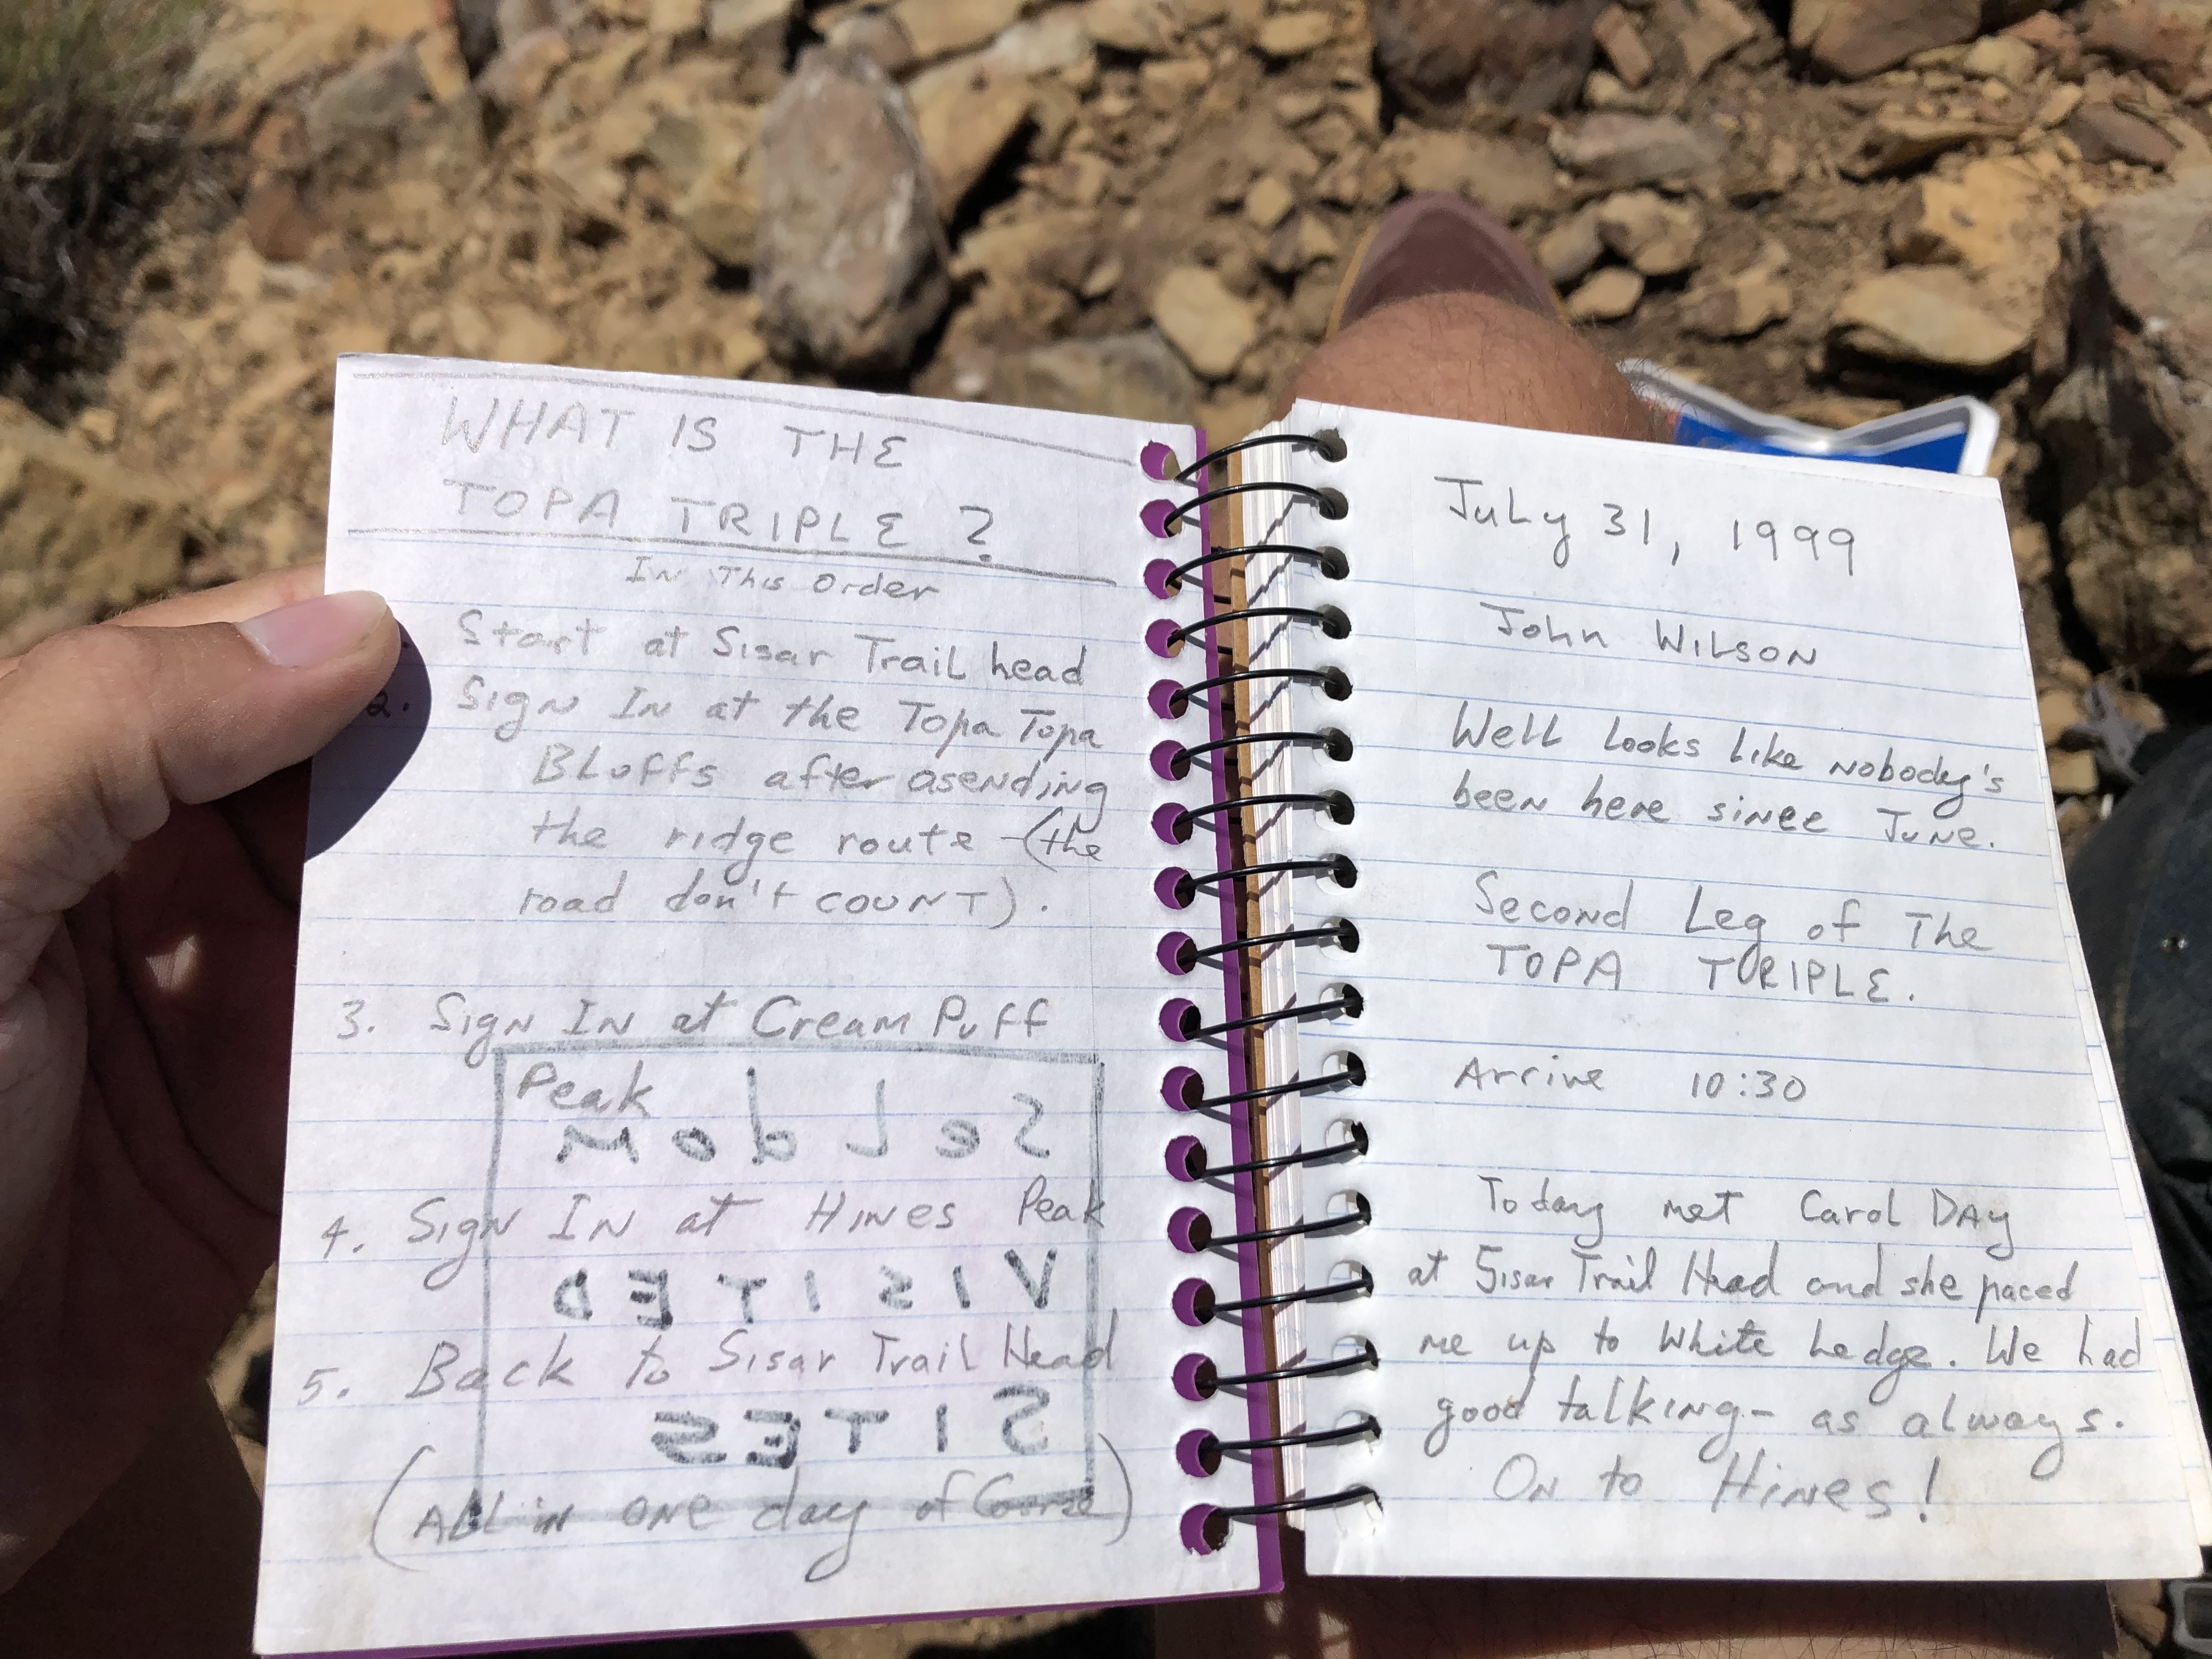 WHAT IS THE
TOPA TRIPLE?
In This Order
Start at Sisar Trail head
2. Sign In at the Topa Topa
Bluffs after asending
the ridge route - (the
road don't COUNT).
3. Sign In at Cream Puff
Peak
SeLdom
4. Sign In at Hines Peak
VISITED
5. Back to Sisar Trail Head
SITES
(ALL in one day of Corse)
July 31, 1999
John Wilson
Well Looks Like nobody's
been here since June.
Second Leg of The
TOPA TRIPLE.
Arrive 10:30
Today met Carol Day
at Sisar Trail Head and she paced
me up to White Ledge. We had
good talking - as always.
On to Hines!